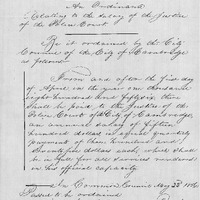 An Ordinance
Relating to the salary of the Justice
of the Police Court
Be it ordained by the City
Council of the City of Cambridge
as follows
From and after the first day
of April in the year one thousand
eight hundred and fifty six there
shall be paid to the Justice of the
Police Court of the City of Cambridge,
an annual salary of fifteen
hundred dollars in equal quarterly
payments of three hundred and
seventy five dollars each, which shall
be in full for all services rendered
in his official capacity
In Common Council May 28th 1856
Passed to be ordained